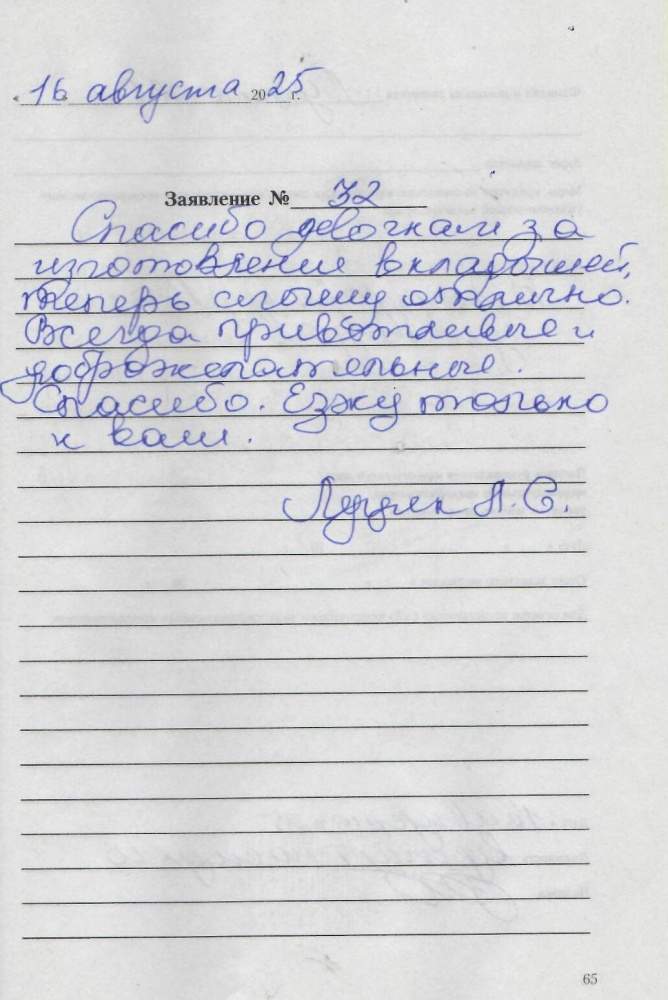 16 августа 2025 г.
Заявление № 32
Спасибо девочкам за
изготовление вкладышей,
теперь слышу отлично.
Всегда приветливые и
доброжелательные.
Спасибо. Езжу только
к вам.
А. С.
65